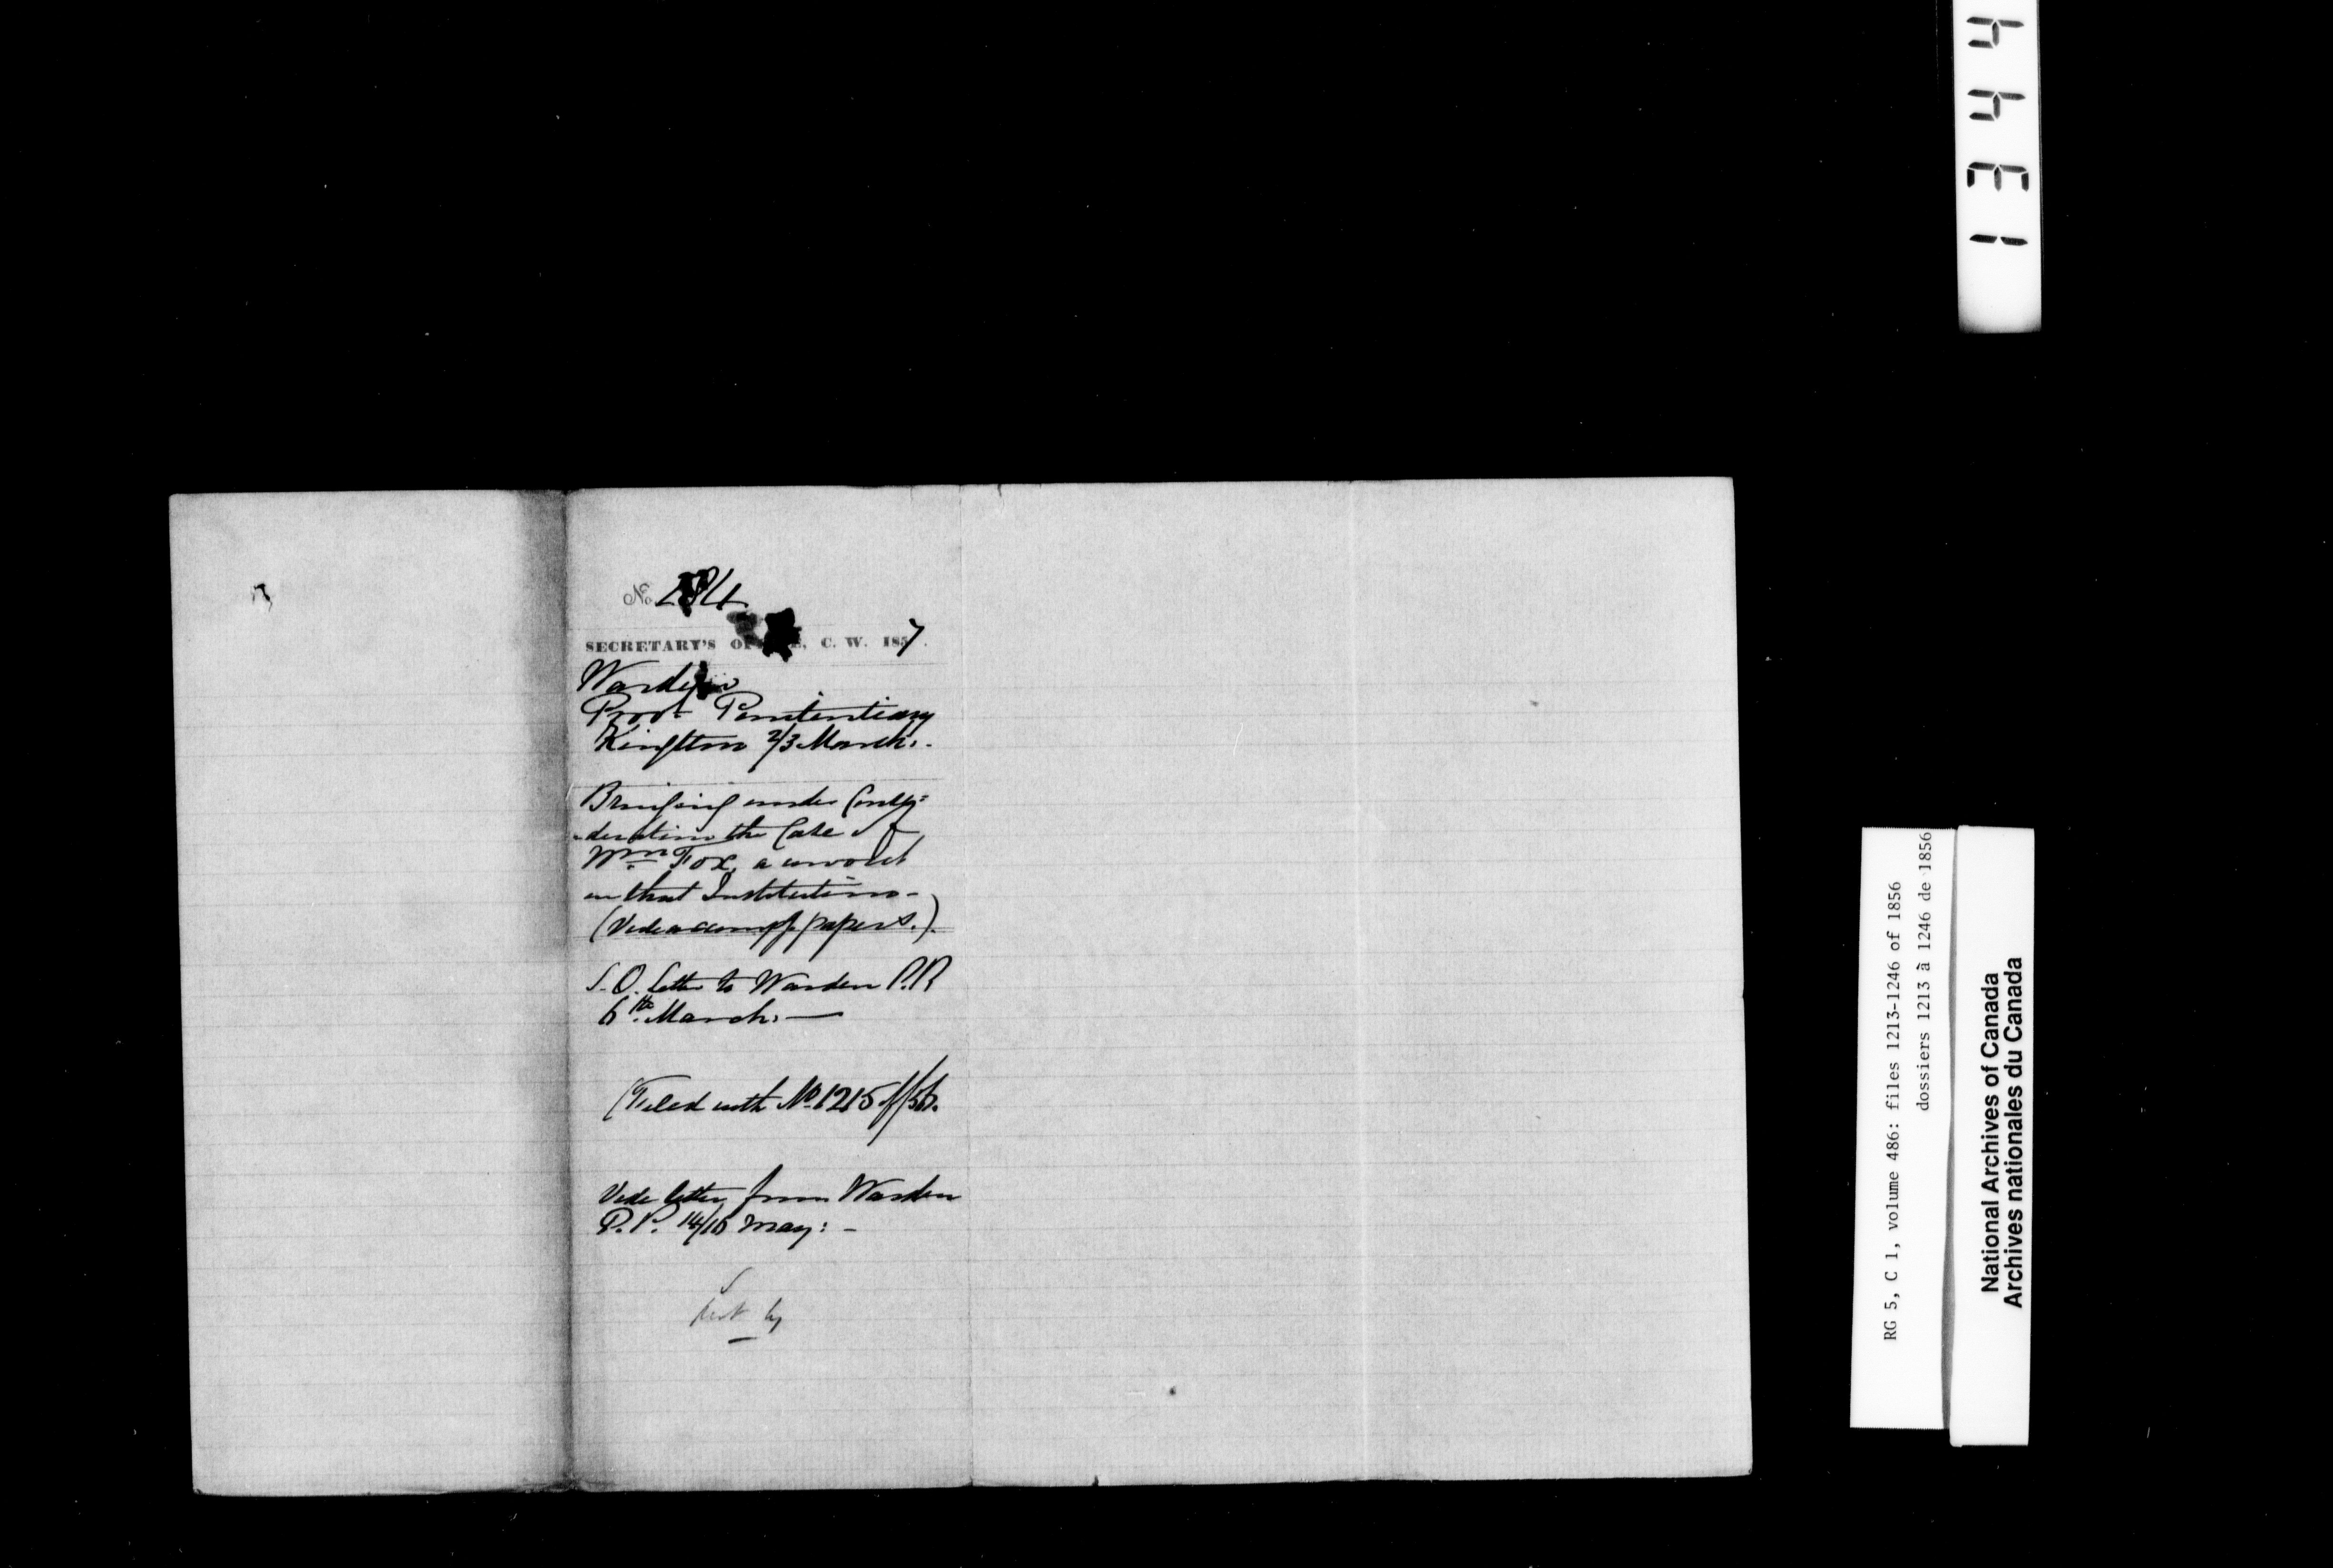 No.
SECRETARY'S OFFICE, C. W. 1857.
Warden
Provl. Penitentiary
Kingston 2/3 March.
Bringing under Consi-
-deration the Case of
Wm Fox, a convict
in that Institution-
(Vide accompg papers.)
S. O. Letter to Warden P.P.
6th March.
(Filed with No. 1215 of/56.
Vide letter from Warden
P.P. 14/16 May: -
1344
RG 5, C 1, volume 486: files 1213-1246 of 1856
dossiers 1213 à 1246 de 1856
National Archives of Canada
Archives nationales du Canada